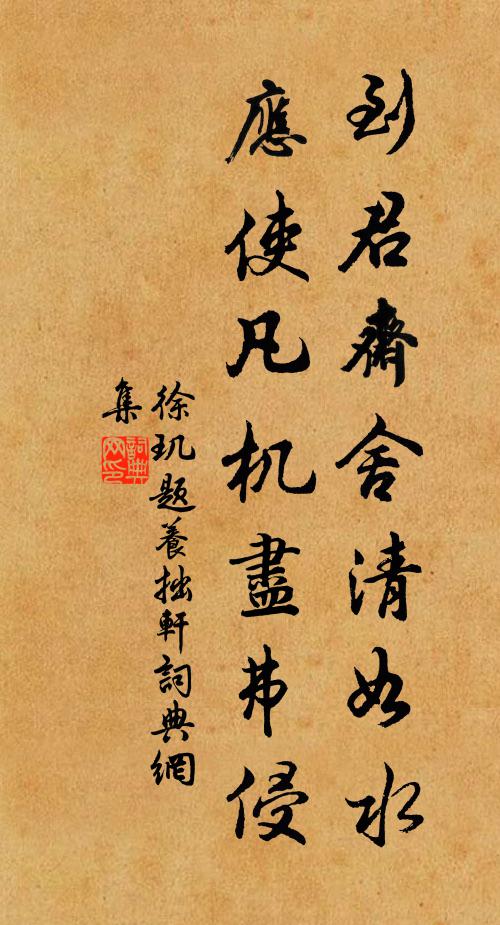 到君齋舍清如水
應使凡机盡弗侵
徐玑題養拙軒詞典網
集
詞典網印